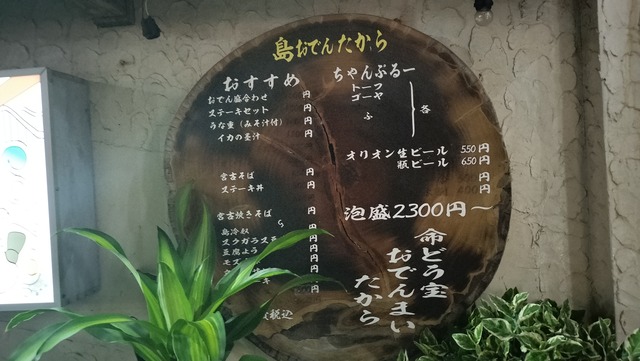 島おでんたから
おすすめ
おでん盛合わせ 円
ステーキセット 円
うな重（みそ汁付） 円
イカの墨汁 円
宮古そば 円
ステーキ丼 円
宮古焼きそば 円
島冷奴 円
スクガラス豆 円
豆腐よう 円
モズ 円
税込
ちゃんぷるー
トーフ
ゴーヤ
ふ
各
オリオン生ビール 550円
瓶ビール 650円
円
円
泡盛2300円～
命どう宝
おでんまい
たから